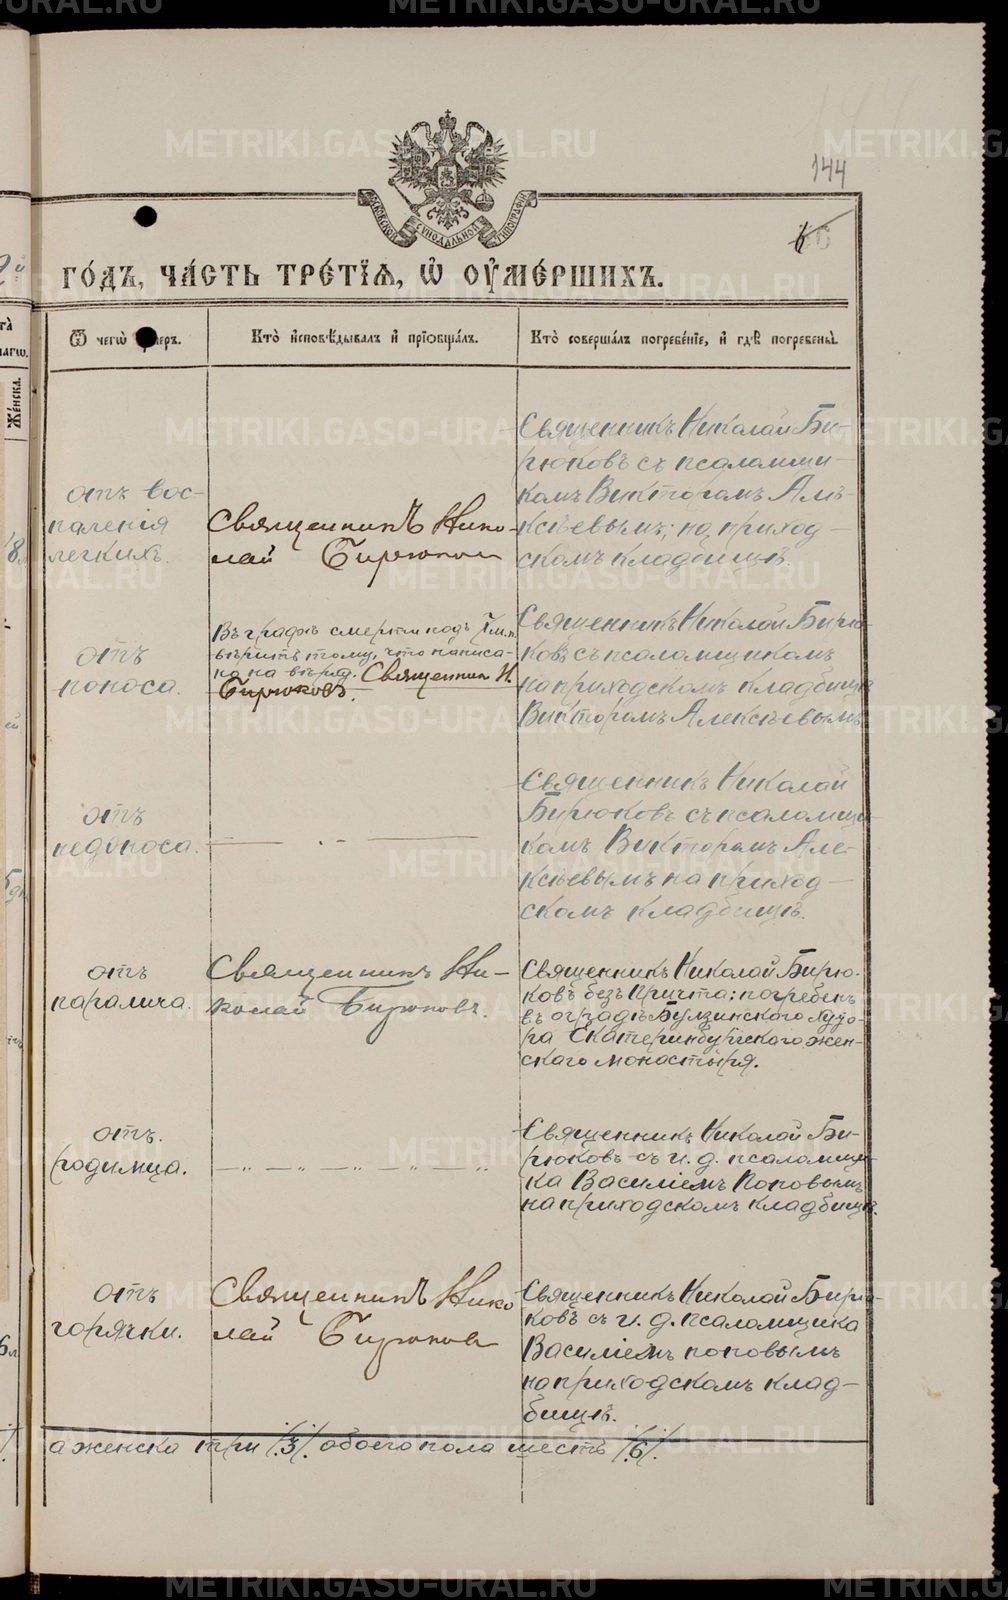 144
МОСКОВСКОЙ СѴНОДАЛЬНОЙ ТИПОГРАФІИ
го́дъ, ча́сть тре́тїѧ, ѡ҆ ᲂу҆ме́ршихъ.
Же́нска.
Ѿ чегѡ̀ ᲂу҆́меръ.
Кто̀ и҆сповѣ́дывалъ и҆ прїѻбща́лъ.
Кто̀ соверша́лъ погребе́нїе, и҆ гдѣ̀ погребены̀.
отъ вос-
паленія
легкихъ.
Священникъ Нико-
лай Бирюковъ
Священникъ Николай Би-
рюковъ съ псаломщи-
комъ Викторомъ Алек-
сѣевымъ; на приход-
скомъ кладбищѣ.
отъ
поноса.
Въ графѣ смерти подъ
вѣрить тому, что написа-
но на
Священник Н.
Бирюковъ.
Священникъ Николай Бирю-
ковъ съ псаломщикомъ
на приходскомъ кладбищѣ
Викторомъ Алексѣевымъ
отъ
недоноса.
Священникъ Николай
Бирюковъ съ псаломщи-
комъ Викторомъ Але-
ксѣевымъ на приход-
скомъ кладбищѣ.
отъ
паралича.
Священникъ Ни-
колай Бирюковъ.
Священникъ Николай Бирю-
ковъ безъ причта; погребенъ
въ оградѣ Булзинского хуто-
ра Екатеринбургскаго жен-
скаго монастыря.
отъ.
родимца.
Священникъ Николай Би-
рюковъ съ и. д. псаломщи-
ка Василіемъ Поповымъ
на приходскомъ кладбищѣ.
отъ
горячки.
Священникъ Нико
лай Бирюковъ
Священникъ Николай Бирю-
ковъ съ и. д. псаломщика
Василіемъ Поповымъ
на приходскомъ клад-
бищѣ.
а женска три /3/. обоего пола шесть /6/.
METRIKI.GASO-URAL.RU